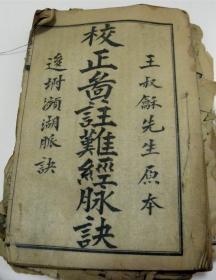 王叔龢先生原本
校正啚註難經脉訣
逸附瀕湖脈訣